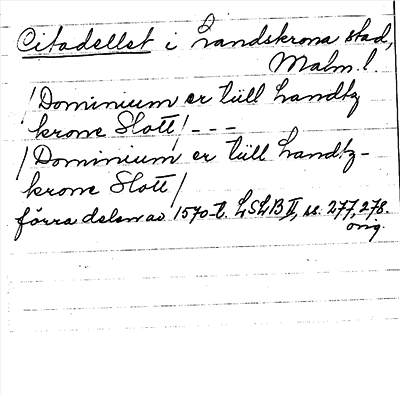 Citadellet i Landskrona stad,
Malm. l.
/Dominium er till Landtz
krone Slott/ - - -
/Dominium er till Landtz-
krone Slott/
förra delen av 1570-t. LSLB II, ss. 277, 278.
orig.